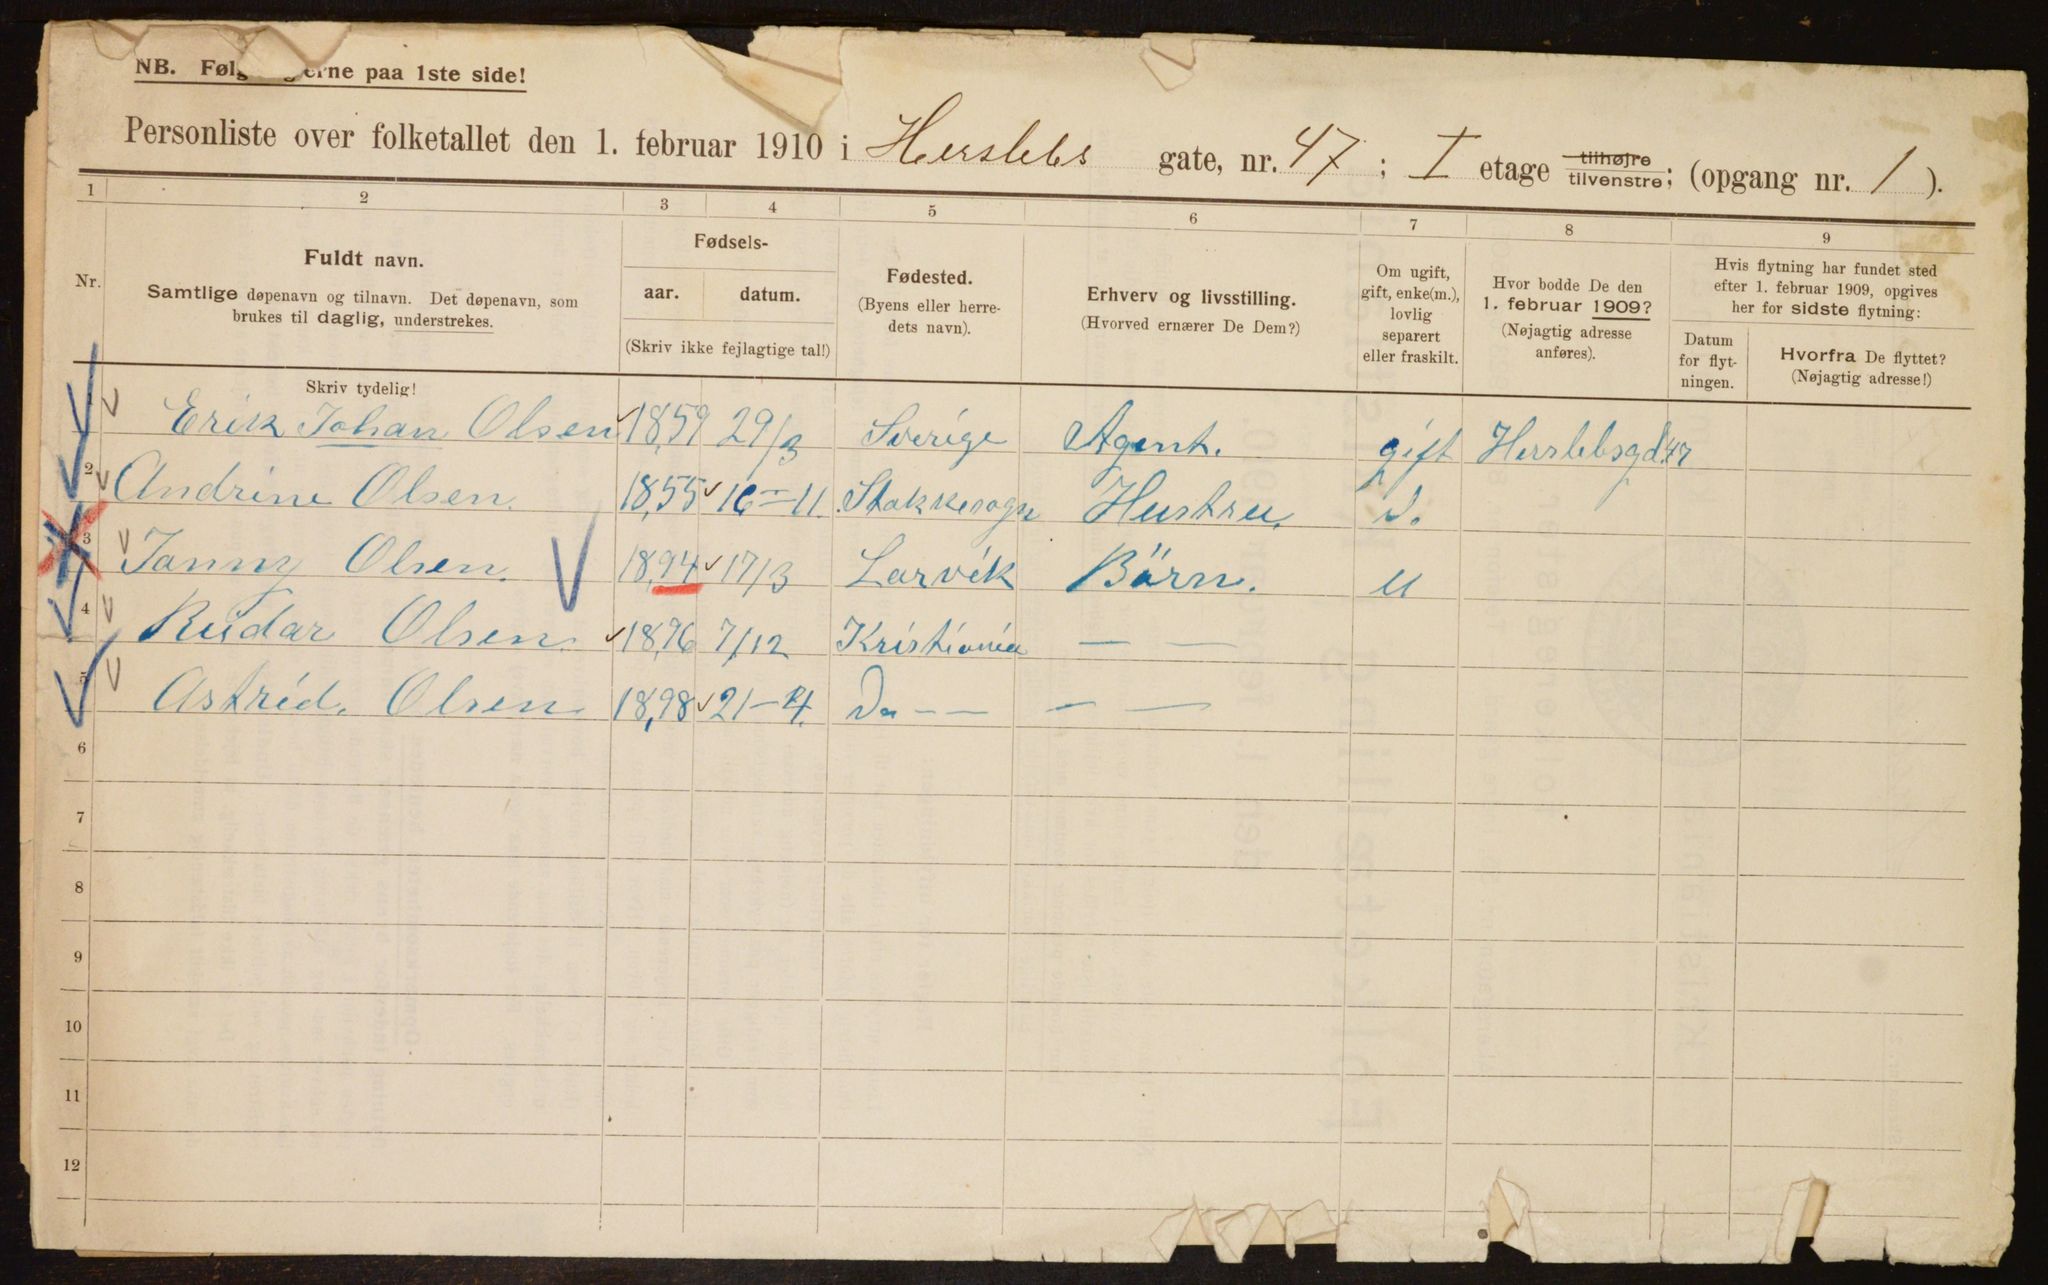 NB. Følg erne paa 1ste side!
Personliste over folketallet den 1. februar 1910 i Herslebs gate, nr. 47; I etage tilhøjre tilvenstre; (opgang nr. 1).
1 2 3 4 5 6 7 8 9
Nr.
Fuldt navn.
Samtlige døpenavn og tilnavn. Det døpenavn, som
brukes til daglig, understrekes.
Skriv tydelig!
Fødsels-
aar. datum.
(Skriv ikke fejlagtige tal!)
Fødested.
(Byens eller herre-
dets navn).
Erhverv og livsstilling.
(Hvorved ernærer De Dem?)
Om ugift,
gift, enke(m.),
lovlig
separert
eller fraskilt.
Hvor bodde De den
1. februar 1909?
(Nøjagtig adresse
anføres).
Hvis flytning har fundet sted
efter 1. februar 1909, opgives
her for sidste flytning:
Datum
for flyt-
ningen.
Hvorfra De flyttet?
(Nøjagtig adresse!)
Erik Johan Olsen 1859 29/3 Sverige Agent. gift Herslebsgd 47
2 Andrine Olsen. 1855 16-11 Stokkesogn Hustru. D.
3 Janny Olsen. 1894 17/3 Larvik Börn. U
4 Reidar Olsen 1896 7/12 Kristiania — —
5 Astrid. Olsen 1898 21-4. Do — — — —
6
7
8
9
10
11
12